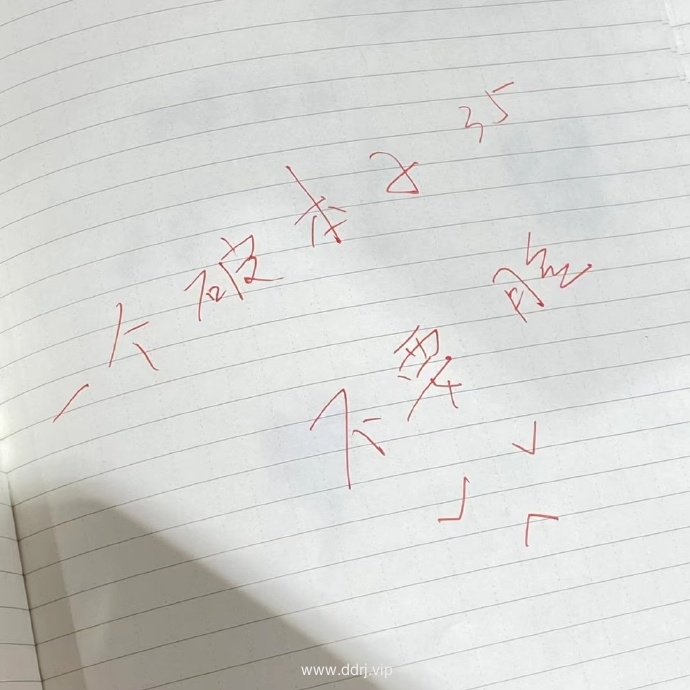 一个破本 35
不要脸
www.ddrj.vip